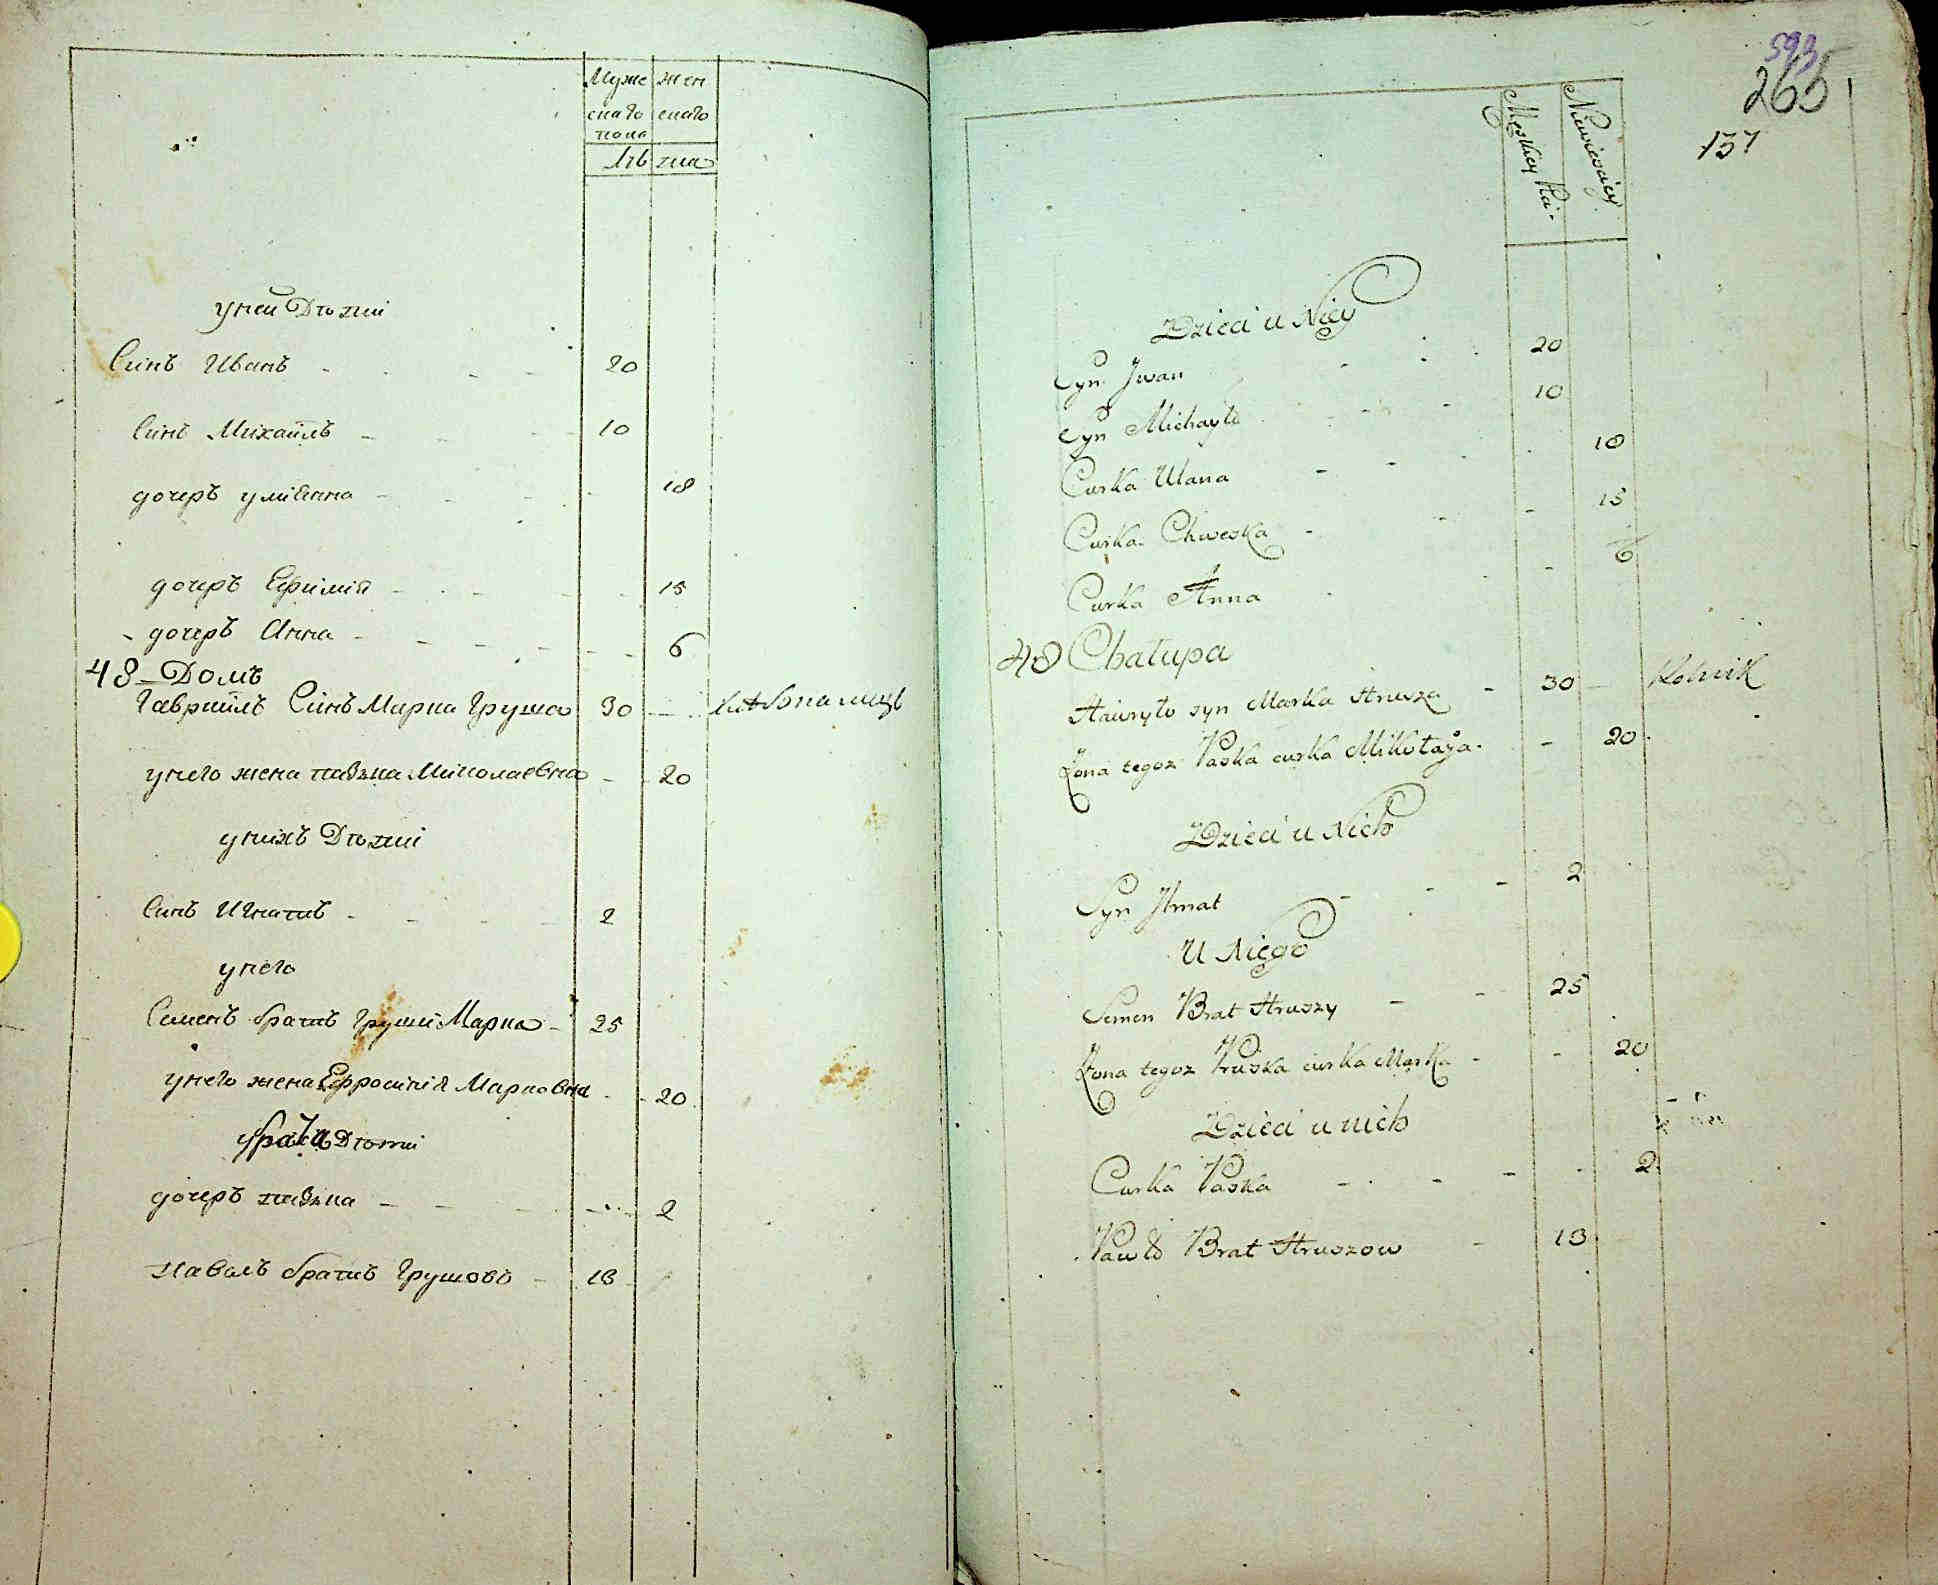 Муже жен
скаго скаго
пола
лѣта
у ней Дѣти
Синъ Иванъ 20
Синъ Михаилъ 10
дочеръ улияна 18
дочеръ Ефимия 15
дочеръ Анна 6
48 Домъ
Гавриилъ Синъ Марка Груша 30 хлѣбопашецъ
у него жена Миколаевна 20
у нихъ Дѣти
Синъ Игнатъ 2
у него
Семенъ братъ Груши Марка 25
у него жена Ефросиния Марковна 20
Дѣти
дочеръ 2
Павелъ братъ Грушовъ 18
593
265
137
Męskiey Niewieściey
Dzieci u Niey
Syn Jwan 20
Syn Michayło 10
Curka Ulana 18
Curka Chweska 15
Curka Anna 6
48 Chałupa
Hawryło syn Marka Hrusza 30 Rolnik
Żona tegoż Paska curka Mikołaja 20
Dzieci u Nich
Syn Ihnat 2
U Niego
Semen Brat Hruszy 25
Żona tegoż Pruska curka Marka 20
Dzieci u nich
Curka Paska 2
Pawło Brat Hruszow 18